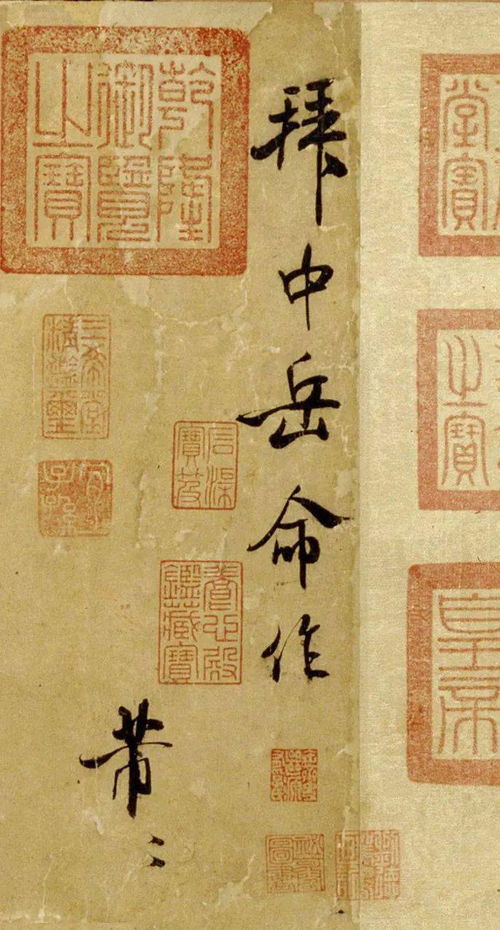 堂寶
之寶
皇帝
拜中岳命作
芾
乾隆御覽之寶
石渠寶笈
養心殿鑑藏寶
三希堂精鑑璽
宜子孫